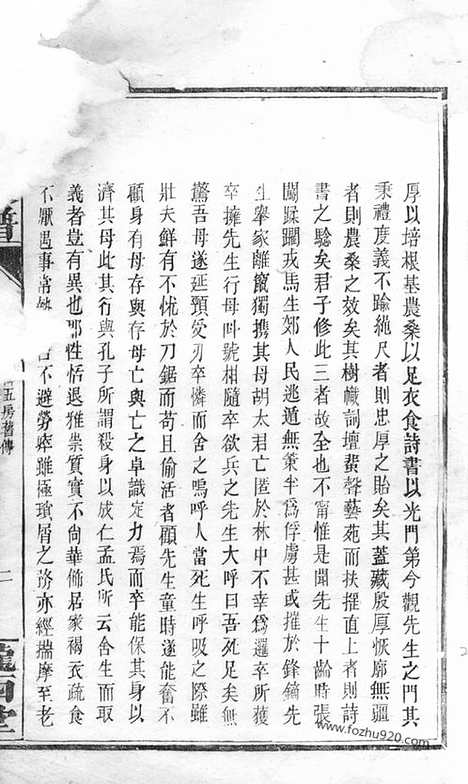 厚以培根基農桑以足衣食詩書以光門第今觀先生之門其
秉禮度義不踰繩尺者則忠厚之貽矣其蓋藏殷厚恢廓無疆
者則農桑之效矣其樹幟詞壇蜚聲藝苑而扶搖直上者則詩
書之驗矣君子修此三者故全也不甯惟是聞先生十齡時張
闖蹂躪戎馬生郊人民逃遁無策半爲俘虜甚或摧於鋒鏑先
生舉家離竄獨携其母胡太君亡匿於林中不幸爲邏卒所獲
卒擁先生行母號相隨卒欲兵之先生大呼曰吾死足矣無
驚吾母遂延頸受刃卒憐而舍之嗚呼人當死生呼吸之際雖
壯夫鮮有不怵於刀鋸而苟且偷活者顧先生童時遂能奮不
顧身有母存與存母亡與亡之卓識定力焉而卒能保其身以
濟其母此其行與孔子所謂殺身以成仁孟氏所云舍生而取
義者豈有異也耶性恬退雅崇質實不尙華飾居家褐衣疏食
不厭遇事當 不避勞瘁雖極瑣屑之務亦經揣摩至老
譜
五房 傳
二
堂
www.fozhu920.com